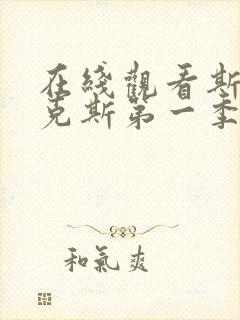 在綫觀看斯
克斯第一季
和氣爽